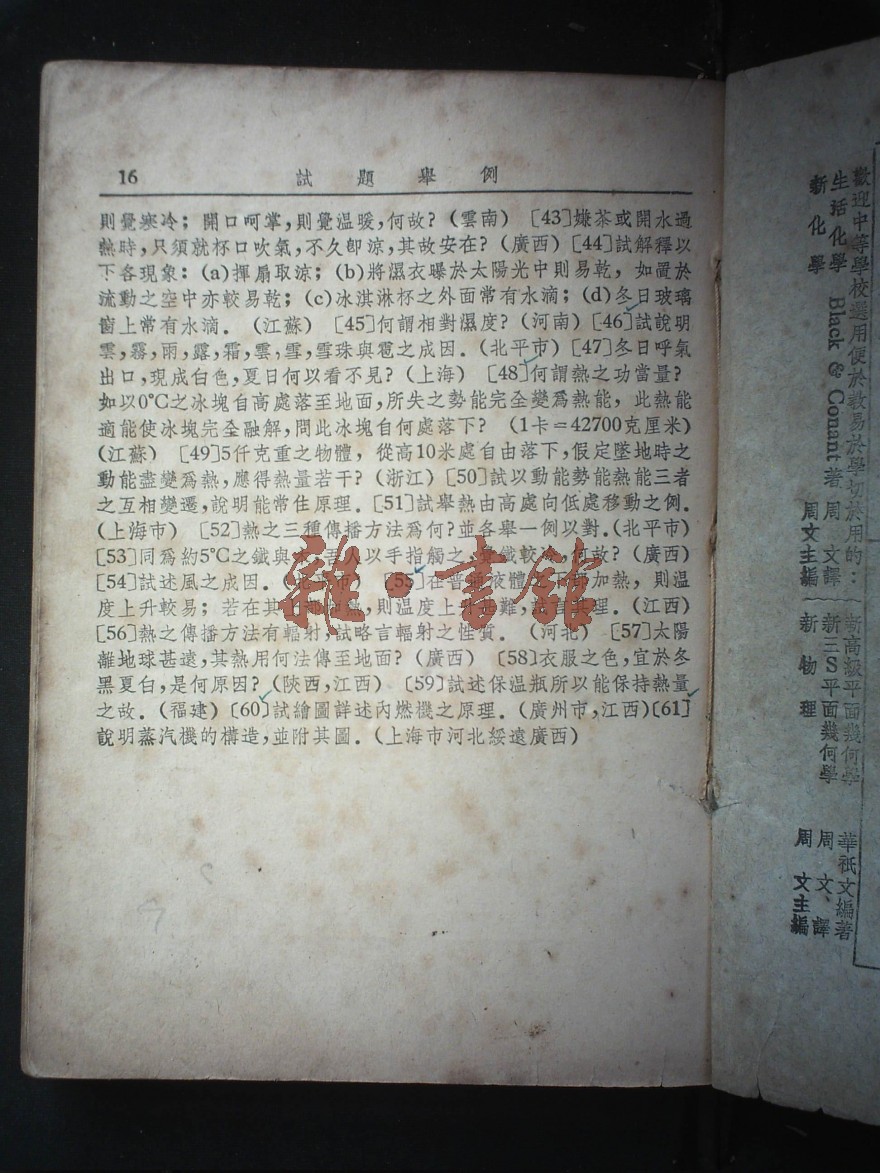 16 試題舉例
則覺寒冷；開口呵掌，則覺温暖，何故？(雲南) [43]嫌茶或開水過
熱時，只須就杯口吹氣，不久卽涼，其故安在？(廣西) [44]試解釋以
下各現象：(a)揮扇取涼；(b)將濕衣曝於太陽光中則易乾，如置於
流動之空中亦較易乾；(c)冰淇淋杯之外面常有水滴；(d)冬日玻璃
窗上常有水滴．(江蘇) [45]何謂相對濕度？(河南) [46]試說明
雲，霧，雨，露，霜，雲，雪，雪珠與雹之成因．(北平市) [47]冬日呼氣
出口，現成白色，夏日何以看不見？(上海) [48]何謂熱之功當量？
如以0°C之冰塊自高處落至地面，所失之勢能完全變爲熱能，此熱能
適能使冰塊完全融解，問此冰塊自何處落下？ (1卡=42700克厘米)
(江蘇) [49]5仟克重之物體，從高10米處自由落下，假定墜地時之
動能盡變爲熱，應得熱量若干？(浙江) [50]試以動能勢能熱能三者
之互相變遷，說明能常住原理．[51]試舉熱由高處向低處移動之例．
(上海市) [52]熱之三種傳播方法爲何？並各舉一例以對．(北平市)
[53]同爲約5°C之鐵與 吾人以手指觸之，覺鐵較冷，何故？(廣西)
[54]試述風之成因．(北平市) [55]在普通液體之下部加熱，則温
度上升較易；若在其上部加熱，則温度上升 難，試言其理．(江西)
[56]熱之傳播方法有輻射，試略言輻射之性質．(河北) [57]太陽
離地球甚遠，其熱用何法傳至地面？(廣西) [58]衣服之色，宜於冬
黑夏白，是何原因？(陝西，江西) [59]試述保温瓶所以能保持熱量
之故．(福建) [60]試繪圖詳述內燃機之原理．(廣州市，江西)[61]
說明蒸汽機的構造，並附其圖．(上海市河北綏遠廣西)
雜·書館
歡迎中等學校選用便於敎易於學切於用的：
生活化學 Black & Conant 著 周文譯
新化學 周文主編
新高級平面幾何學 華祇文編著
新三S平面幾何學 周文、譯
新物理 周文主編